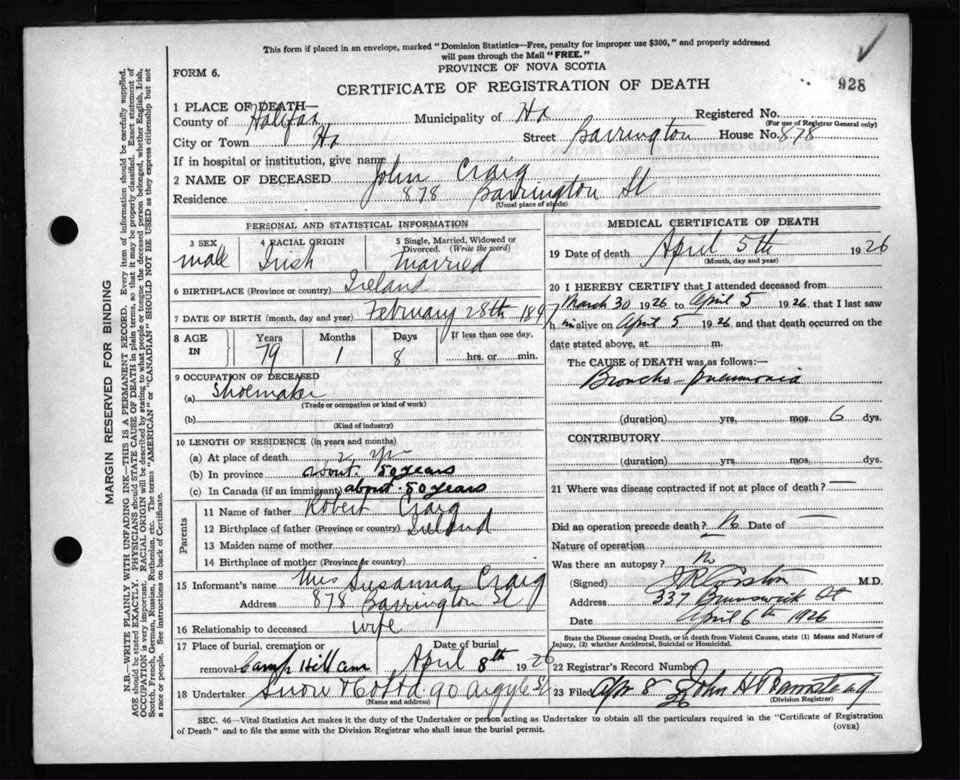 This form if placed in an envelope, marked "Dominion Statistics—Free, penalty for improper use $300," and properly addressed
will pass through the Mail "FREE."
PROVINCE OF NOVA SCOTIA
FORM 6.
CERTIFICATE OF REGISTRATION OF DEATH
928
1 PLACE OF DEATH—
County of Halifax Municipality of Hx Registered No.
(For use of Registrar General only)
City or Town Hx Street Barrington House No. 878
If in hospital or institution, give name
2 NAME OF DECEASED John Craig
Residence 878 Barrington St
(Usual place of abode)
PERSONAL AND STATISTICAL INFORMATION
3 SEX 4 RACIAL ORIGIN 5 Single, Married, Widowed or Divorced. (Write the word)
male Irish married
6 BIRTHPLACE (Province or country) Ireland
7 DATE OF BIRTH (month, day and year) February 28th 1847
8 AGE IN Years Months Days If less than one day,
79 1 8 hrs. or min.
9 OCCUPATION OF DECEASED
(a) Shoemaker
(Trade or occupation or kind of work)
(b)
(Kind of industry)
10 LENGTH OF RESIDENCE (in years and months)
(a) At place of death 2 yrs
(b) In province about 50 years
(c) In Canada (if an immigrant) about 50 years
Parents
11 Name of father Robert Craig
12 Birthplace of father (Province or country) Ireland
13 Maiden name of mother
14 Birthplace of mother (Province or country)
15 Informant's name Mrs Susanna Craig
Address 878 Barrington St
16 Relationship to deceased wife
17 Place of burial, cremation or removal Camp Hill Cem Date of burial April 8th 1926
18 Undertaker Snow 90 Argyle St
(Name and address)
MEDICAL CERTIFICATE OF DEATH
19 Date of death April 5th 1926
(Month, day and year)
20 I HEREBY CERTIFY that I attended deceased from
March 30 1926 to April 5 1926 that I last saw
h im alive on April 5 1926 and that death occurred on the
date stated above, at m.
The CAUSE of DEATH was as follows:—
Broncho-pneumonia
(duration) yrs. mos. 6 dys.
CONTRIBUTORY
(duration) yrs. mos. dys.
21 Where was disease contracted if not at place of death? —
Did an operation precede death? No Date of —
Nature of operation
Was there an autopsy? No
(Signed) M.D.
Address 337 Brunswick St
Date April 6th 1926
State the Disease causing Death, or in death from Violent Causes, state (1) Means and Nature of
Injury, (2) whether Accidental, Suicidal or Homicidal.
22 Registrar's Record Number
23 Filed Apr 8 26 John H Barnstead
(Division Registrar)
SEC. 46—Vital Statistics Act makes it the duty of the Undertaker or person acting as Undertaker to obtain all the particulars required in the "Certificate of Registration
of Death" and to file the same with the Division Registrar who shall issue the burial permit.
(OVER)
MARGIN RESERVED FOR BINDING
N.B.—WRITE PLAINLY WITH UNFADING INK—THIS IS A PERMANENT RECORD. Every item of information should be carefully supplied.
AGE should be stated EXACTLY. PHYSICIANS should STATE CAUSE OF DEATH in plain terms, so that it may be properly classified. Exact statement of
OCCUPATION is very important. RACIAL ORIGIN will be described by stating to what people or tongue the deceased person belonged, whether English, Irish,
Scotch, French, German, Russian, Ruthenian, etc. The terms "AMERICAN" or "CANADIAN" SHOULD NOT BE USED as they express citizenship but not
a race or people. See instructions on back of Certificate.